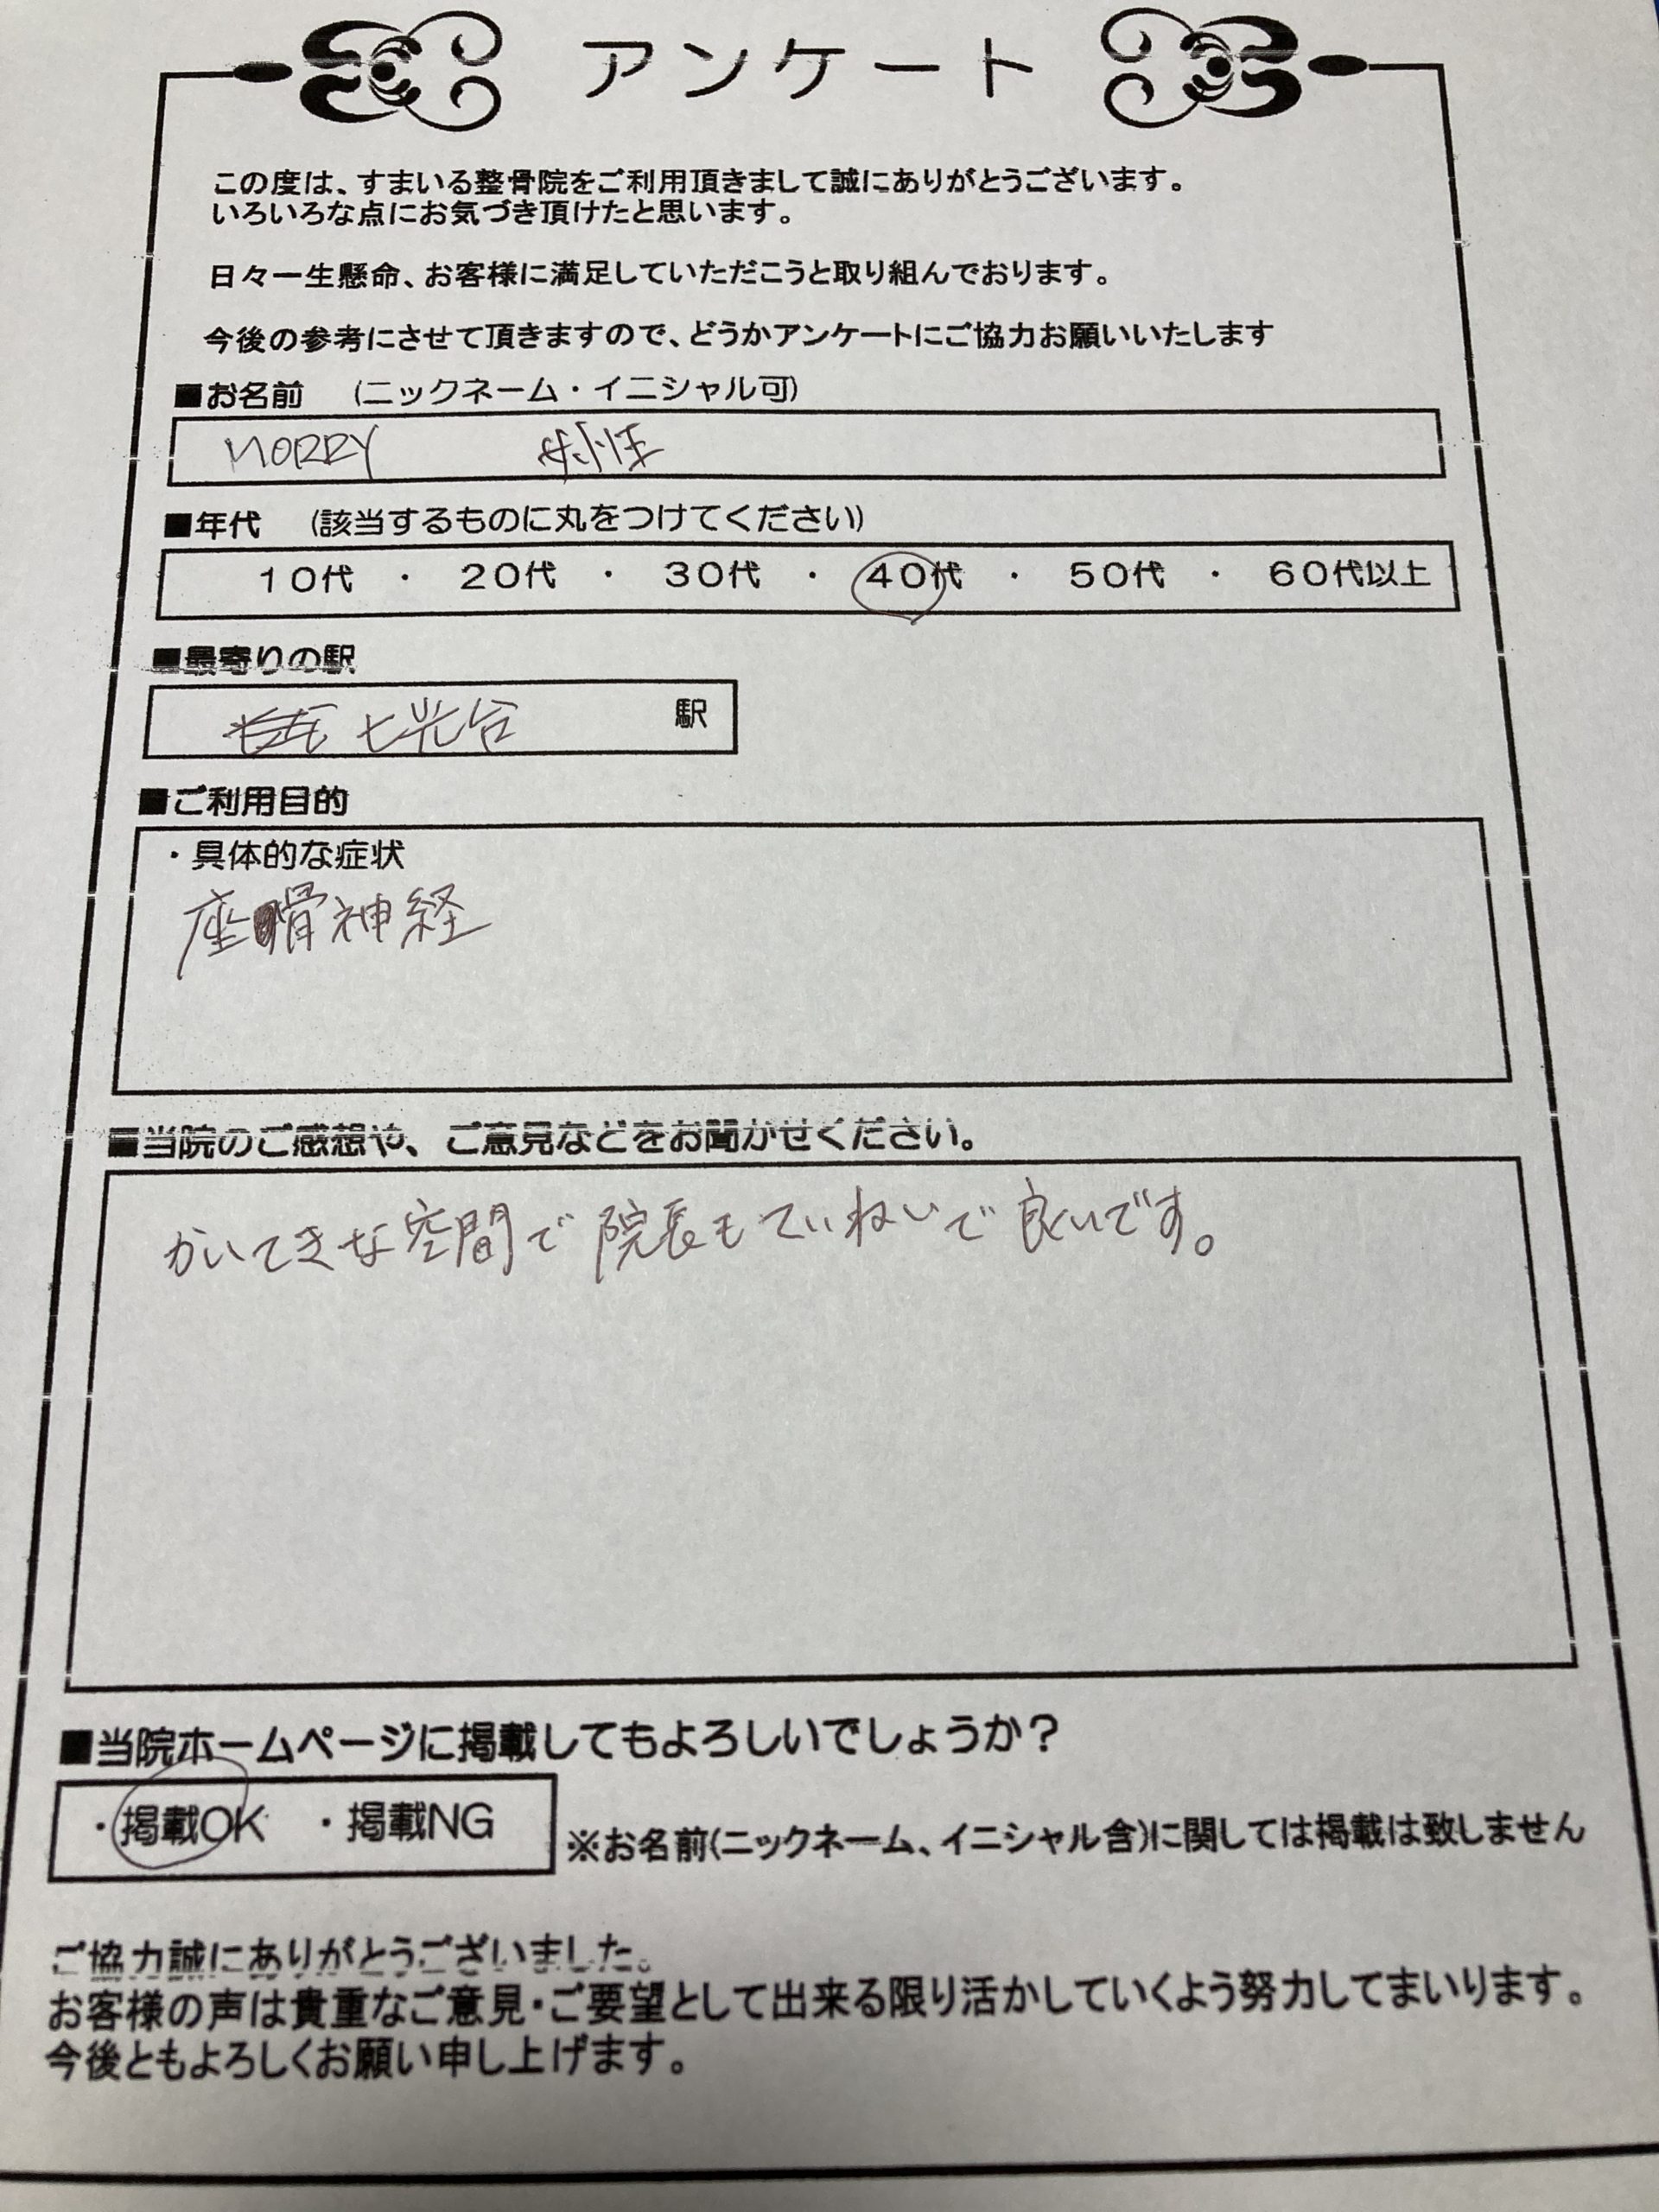 アンケート
この度は、すまいる整骨院をご利用頂きまして誠にありがとうございます。
いろいろな点にお気づき頂けたと思います。
日々一生懸命、お客様に満足していただこうと取り組んでおります。
今後の参考にさせて頂きますので、どうかアンケートにご協力お願いいたします
■お名前　(ニックネーム・イニシャル可)
MORRY
■年代　(該当するものに丸をつけてください)
10代 ・ 20代 ・ 30代 ・ 40代 ・ 50代 ・ 60代以上
■最寄りの駅
七光台 駅
■ご利用目的
・具体的な症状
座骨神経
■当院のご感想や、ご意見などをお聞かせください。
かいてきな空間で院長もていねいで良いです。
■当院ホームページに掲載してもよろしいでしょうか？
・掲載OK ・掲載NG ※お名前(ニックネーム、イニシャル含)に関しては掲載は致しません
ご協力誠にありがとうございました。
お客様の声は貴重なご意見・ご要望として出来る限り活かしていくよう努力してまいります。
今後ともよろしくお願い申し上げます。